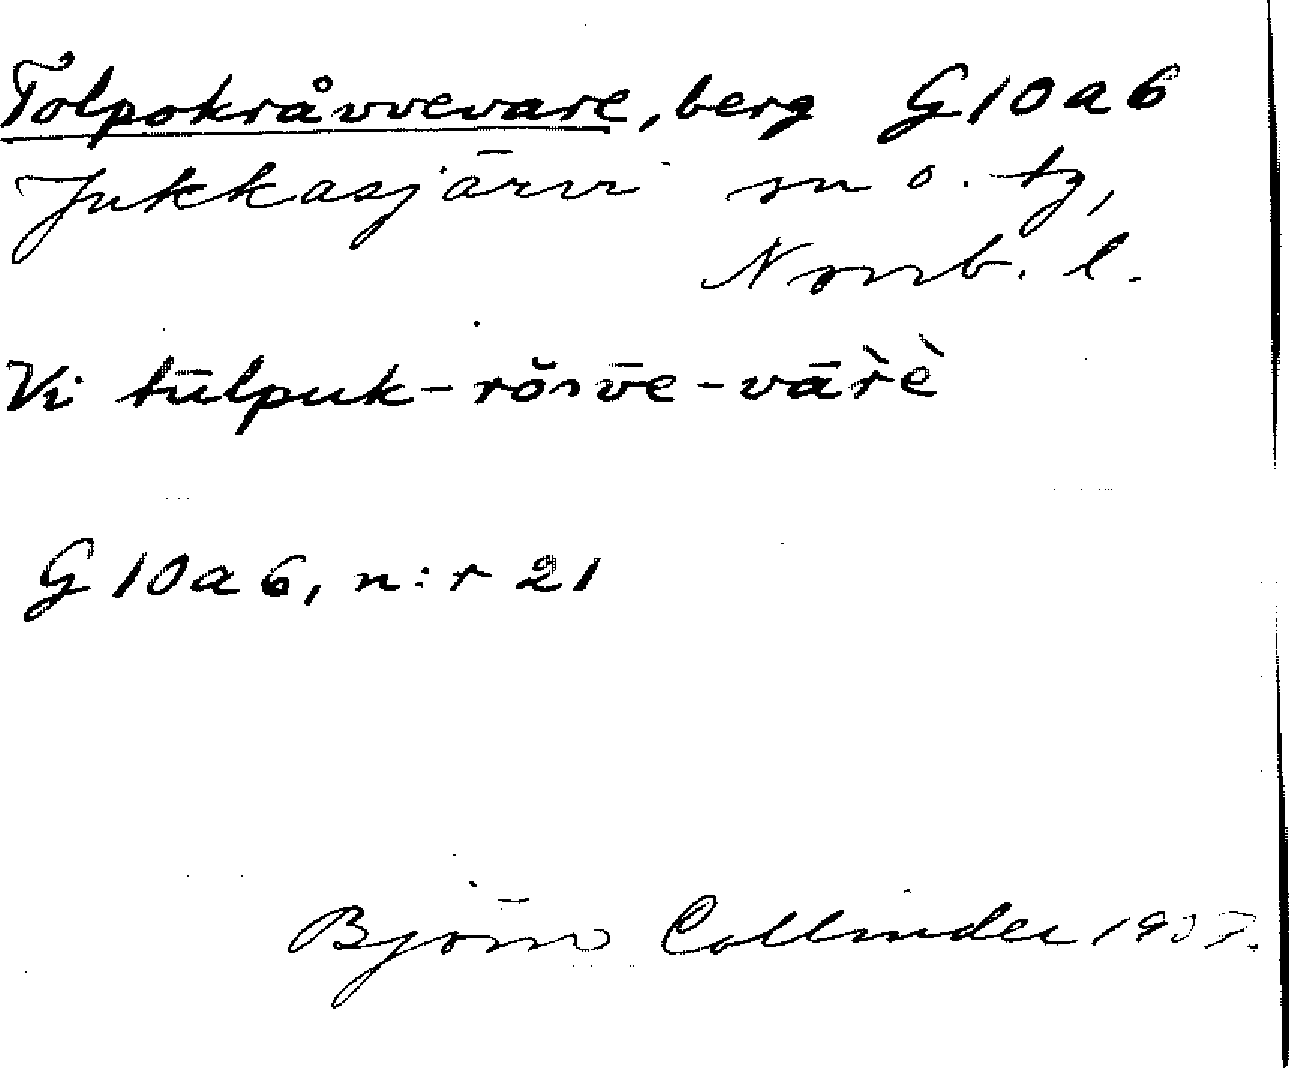 Tolpokråvvevare, berg G10a6
Jukkasjärvi sn o. tg,
Norrb. l.
Vi tūlpuk-rŏsv̄e-vār̀è
G10a6, n:r 21
Björn Collinder